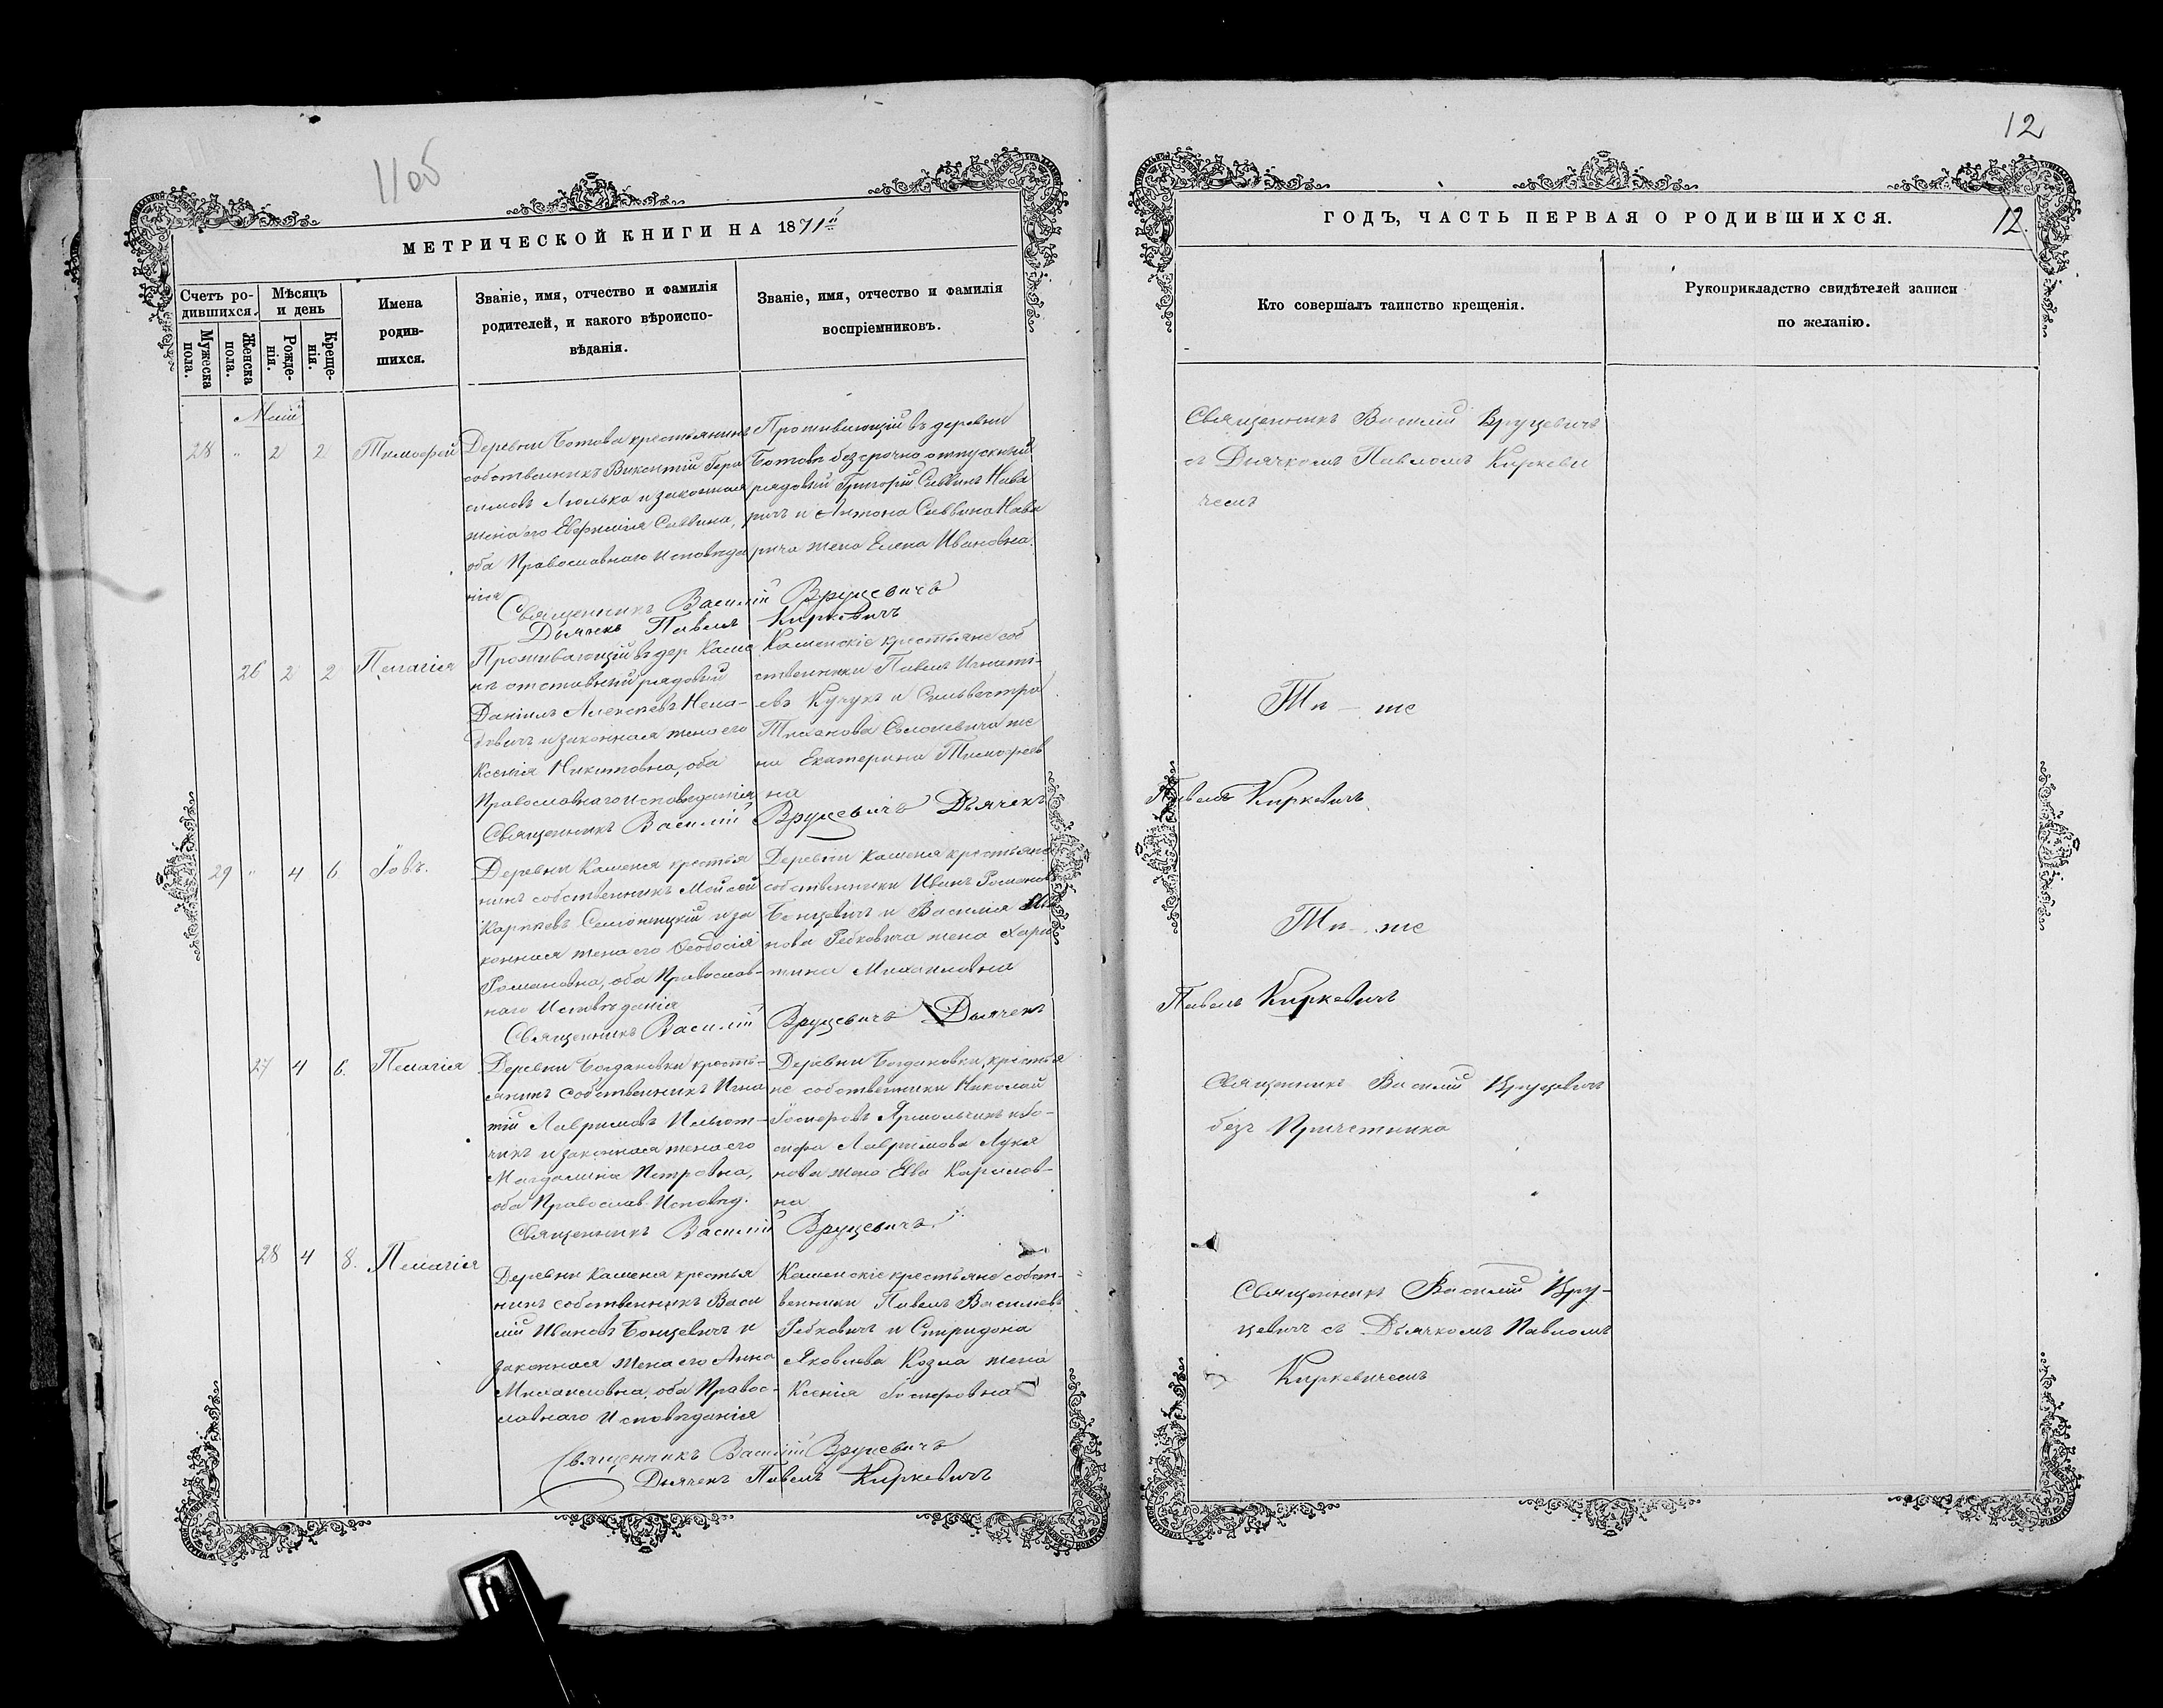 1105
МЕТРИЧЕСКОЙ КНИГИ НА 1871й
Счетъ ро-
дившихся.
Мужеска
пола.
Женска
пола.
Мѣсяцъ
и день
Рожде-
нія.
Креще-
нія.
Имена
родив-
шихся.
Званіе, имя, отчество и фамилія
родителей, и какого вѣроиспо-
вѣданія.
Званіе, имя, отчество и фамилія
воспріемниковъ.
Май
28 " 2 2 Тимофей
Деревни Ботова крестьянинъ
собственникъ Викентій Гера
симовъ Люлька и законная
жена его Евфимія Саввина,
оба Православнаго исповѣда
нія
Проживающій въ деревни
Ботовѣ безсрочно отпускный
рядовый Григорій Саввинъ Нава
ричъ и Антона Саввина Нава
рича жена Елена Ивановна.
Священникъ Василій Вруцевичъ
Дьячекъ Павелъ Киркевичъ
26 2 2 Пелагія
Проживающій въ дер Каме
нѣ отставный рядовый
Даніилъ Алексѣевъ
и законная жена его
Ксенія Никитовна, оба
Православнаго исповѣданія
Каменскіе крестьяне соб
ственники Павелъ Игнаті-
евъ Кучукъ и Сильвестра
же
на Екатерина Тимофеев
на
Священникъ Василій Вруцевичъ Дьячекъ
29 " 4 6 Іовъ.
Деревни Каменя крестья
нинъ собственникъ Мойсей
Карпѣевъ и за
конная жена его Ѳеодосія
Романовна, оба Православ-
наго Исповѣданія
Деревни Каменя крестьяне
собственники Иванъ Романовъ
Бонцевичъ и Василія
нова Ребковича жена Хари
тина Михаиловна
Священникъ Василій Вруцевичъ Дьячекъ
27 4 6. Пелагія
Деревни Богдановки кресть-
янинъ собственникъ Игна
тій Лавримовъ
и законная жена его
Магдалина Петровна,
оба Православ. Исповѣд.
Деревни Богдановки, крестья
не собственники Николай
Іосифовъ Ярмольчикъ и Іо-
сифа Лавримова Лукя
нова жена Ева Карпов-
на
Священникъ Василій Вруцевичъ
28 4 8. Пелагія
Деревни Каменя крестья
нинъ собственникъ Васи
лій Ивановъ Бонцевичъ и
законная жена его Анна
Михаиловна, оба Правос-
лавнаго Исповѣданія
Каменскіе крестьяне собст-
венники Павелъ Василіевъ
Ребковичъ и Спиридона
Яковлева Козла жена
Ксенія Іосифовна
Священникъ Василій Вруцевичъ
Дьячекъ Павелъ Киркевичъ
12
ГОДЪ, ЧАСТЬ ПЕРВАЯ О РОДИВШИХСЯ.
12.
Кто совершалъ таинство крещенія.
Рукоприкладство свидѣтелей записи
по желанію.
Священникъ Василій Вруцевичъ
съ Дьячкомъ Павломъ Киркеви
чемъ
Тѣ - же
Павелъ Киркевичъ
Тѣ - же
Павелъ Киркевичъ
Священникъ Василій Вруцевичъ
безъ Причетника
Священникъ Василій Вру-
цевичъ съ Дьячкомъ Павломъ
Киркевичемъ